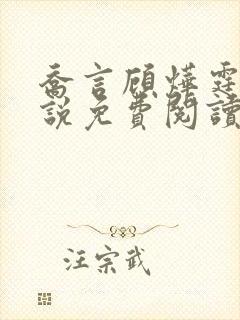 喬言顧燁霆
說免費閱讀
汪宗武